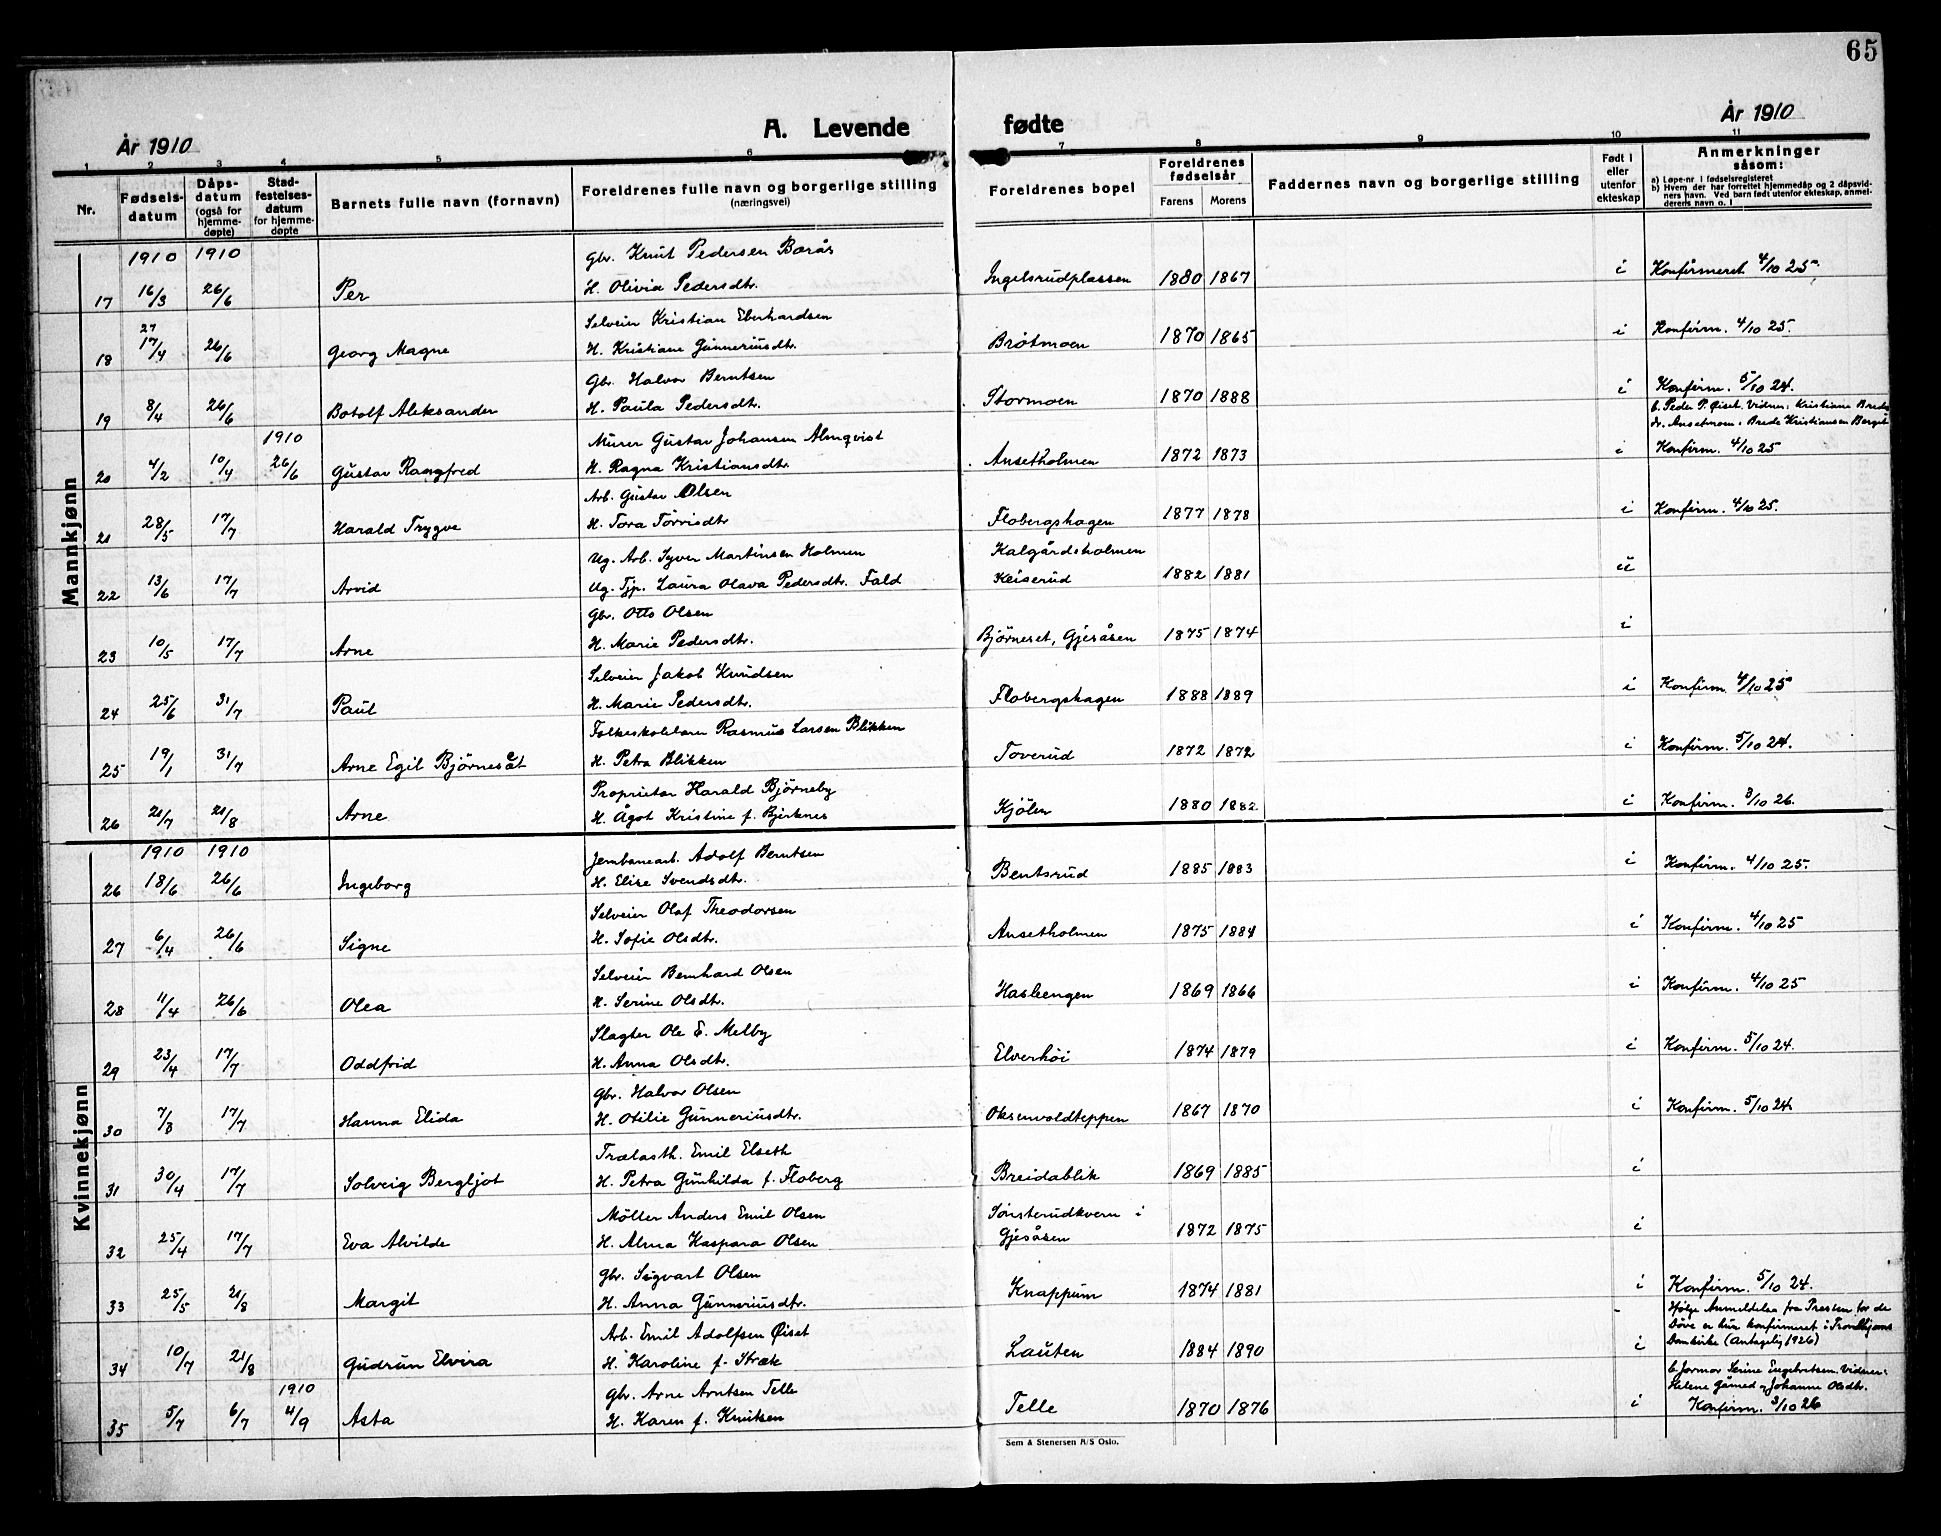 65
År 1910 A. Levende fødte År 1910
1 2 3 4 5 6 7 8 9 10 11
Nr. Fødsels-datum Dåps-datum (også for hjemme-døpte) Stad-festelses-datum for hjemme-døpte Barnets fulle navn (fornavn) Foreldrenes fulle navn og borgerlige stilling (næringsvei) Foreldrenes bopel Foreldrenes fødselsår Farens Morens Faddernes navn og borgerlige stilling Født i eller utenfor ekteskap Anmerkninger såsom:
a) Løpe-nr i fødselsregisteret
b) Hvem der har forrettet hjemmedåp og 2 dåpsvidners navn. Ved barn født utenfor ekteskap, anmelderens navn o. l
Mannkjønn
1910 1910 Gbr. Knut Pedersen Borås
17 16/3 26/6 Per H. Olivia Pedersdtr. Ingelsrudplassen 1880 1867 i Konfirmeret 4/10 25.
27 Selveier Kristian Eberhardsen
18 17/4 26/6 Georg Magne H. Kristiane Gunneriusdtr. Brøtmoen 1870 1865 i Konfirm. 4/10 25.
Gbr. Halvor Berntsen
19 8/4 26/6 Botolf Aleksander H. Paula Pedersdtr. Stormoen 1870 1888 i Konfirm. 5/10 24.
b. Peder P. Øiset. Vidner: Kristiane Bredsdr. Ansetmoen, Brede Kristiansen Berget
1910 Murer Gustav Johansen Almqvist
20 4/2 10/4 26/6 Gustav Rangfred H. Ragna Kristiansdtr. Ansetholmen 1872 1873 i Konfirm. 4/10 25
Arb. Gustav Olsen
21 28/5 17/7 Harald Trygve H. Tora Torrisdtr Flobergshagen 1877 1878 i Konfirm. 4/10 25.
Ug. Arb. Syver Martinsen Holmen Kalgårdsholmen
22 13/6 17/7 Arvid Ug. Tjp. Laura Olava Pedersdtr. Fald Keiserud 1882 1881 u
Gbr. Otto Olsen
23 10/5 17/7 Arne H. Marie Pedersdtr. Bjørneset, Gjesåsen 1875 1874 i
Selveier Jakob Knudsen
24 25/6 31/7 Paul H. Marie Pedersdtr. Flobergshagen 1888 1889 i Konfirm. 4/10 25
Folkeskolelærer Rasmus Larsen Blikken
25 19/1 31/7 Arne Egil Bjørnesåt H. Petra Blikken Toverud 1872 1872 i Konfirm. 5/10 24.
Proprietær Harald Bjørneby
26 21/7 21/8 Arne H. Ågot Kristine f. Bjerknes Kjølen 1880 1882 i Konfirm. 3/10 26.
Kvinnekjønn
1910 1910 Jernbanearb. Adolf Berntsen
26 18/6 26/6 Ingeborg H. Elise Svendsdtr. Bentsrud 1885 1883 i Konfirm. 4/10 25.
Selveier Olaf Theodorsen
27 6/4 26/6 Signe H. Sofie Olsdtr. Ansetholmen 1875 1884 i Konfirm. 4/10 25
Selveier Bernhard Olsen
28 11/4 26/6 Olea H. Serine Olsdtr. Hasleengen 1869 1866 i Konfirm. 4/10 25
Slagter Ole E. Melby
29 23/4 17/7 Oddfrid H. Anna Olsdtr. Elverhøi 1874 1879 i Konfirm. 5/10 24.
Gbr. Halvor Olsen
30 7/3 17/7 Hanna Elida H. Otilie Gunneriusdtr. Oksenvoldteppen 1867 1870 i Konfirm. 5/10 24
Trælasth. Emil Elseth
31 30/4 17/7 Solveig Bergljot H. Petra Gunhilda f. Floberg Breidablik 1869 1885 i
Møller Anders Emil Olsen Sønsterudkvern i
32 25/4 17/7 Eva Alvilde H. Alma Kaspara Olsen Gjesåsen 1872 1875 i
Gbr. Sigvart Olsen
33 25/5 21/8 Margit H. Anna Gunneriusdtr. Knappum 1874 1881 i Konfirm. 5/10 24.
Arb. Emil Adolfsen Øiset Ifølge Anmeldelse fra Presten for de
34 10/7 21/8 Gudrun Elvira H. Karoline f. Stræte Lauten 1884 1890 i Døve er hun konfirmeret i Trondhjems Domkirke (antagelig 1926)
1910 Gbr. Arne Arntsen Telle b. Jormor Serine Engebretsen. Vidner:
Helene Gåsned og Johanne Olsdtr.
35 5/7 6/7 4/9 Asta H. Karen f. Knutsen Telle 1870 1876 i Konfirm. 3/10 26
Sem & Stenersen A/S Oslo.